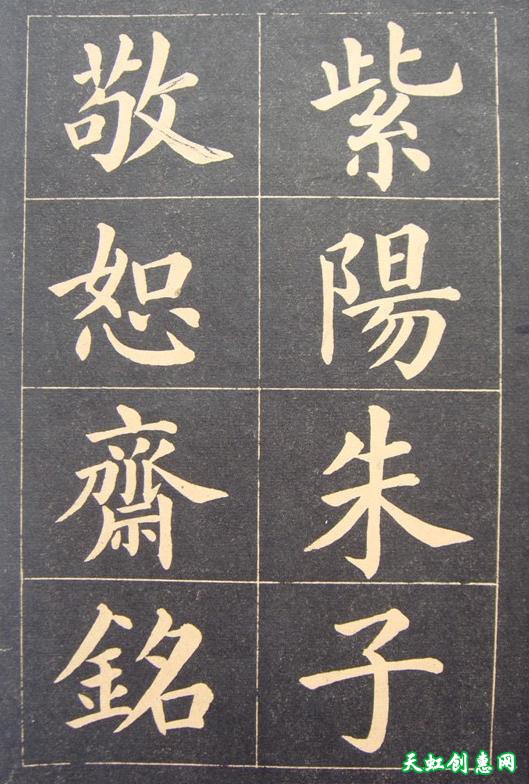 紫陽朱子
敬恕齋銘
天虹创惠网